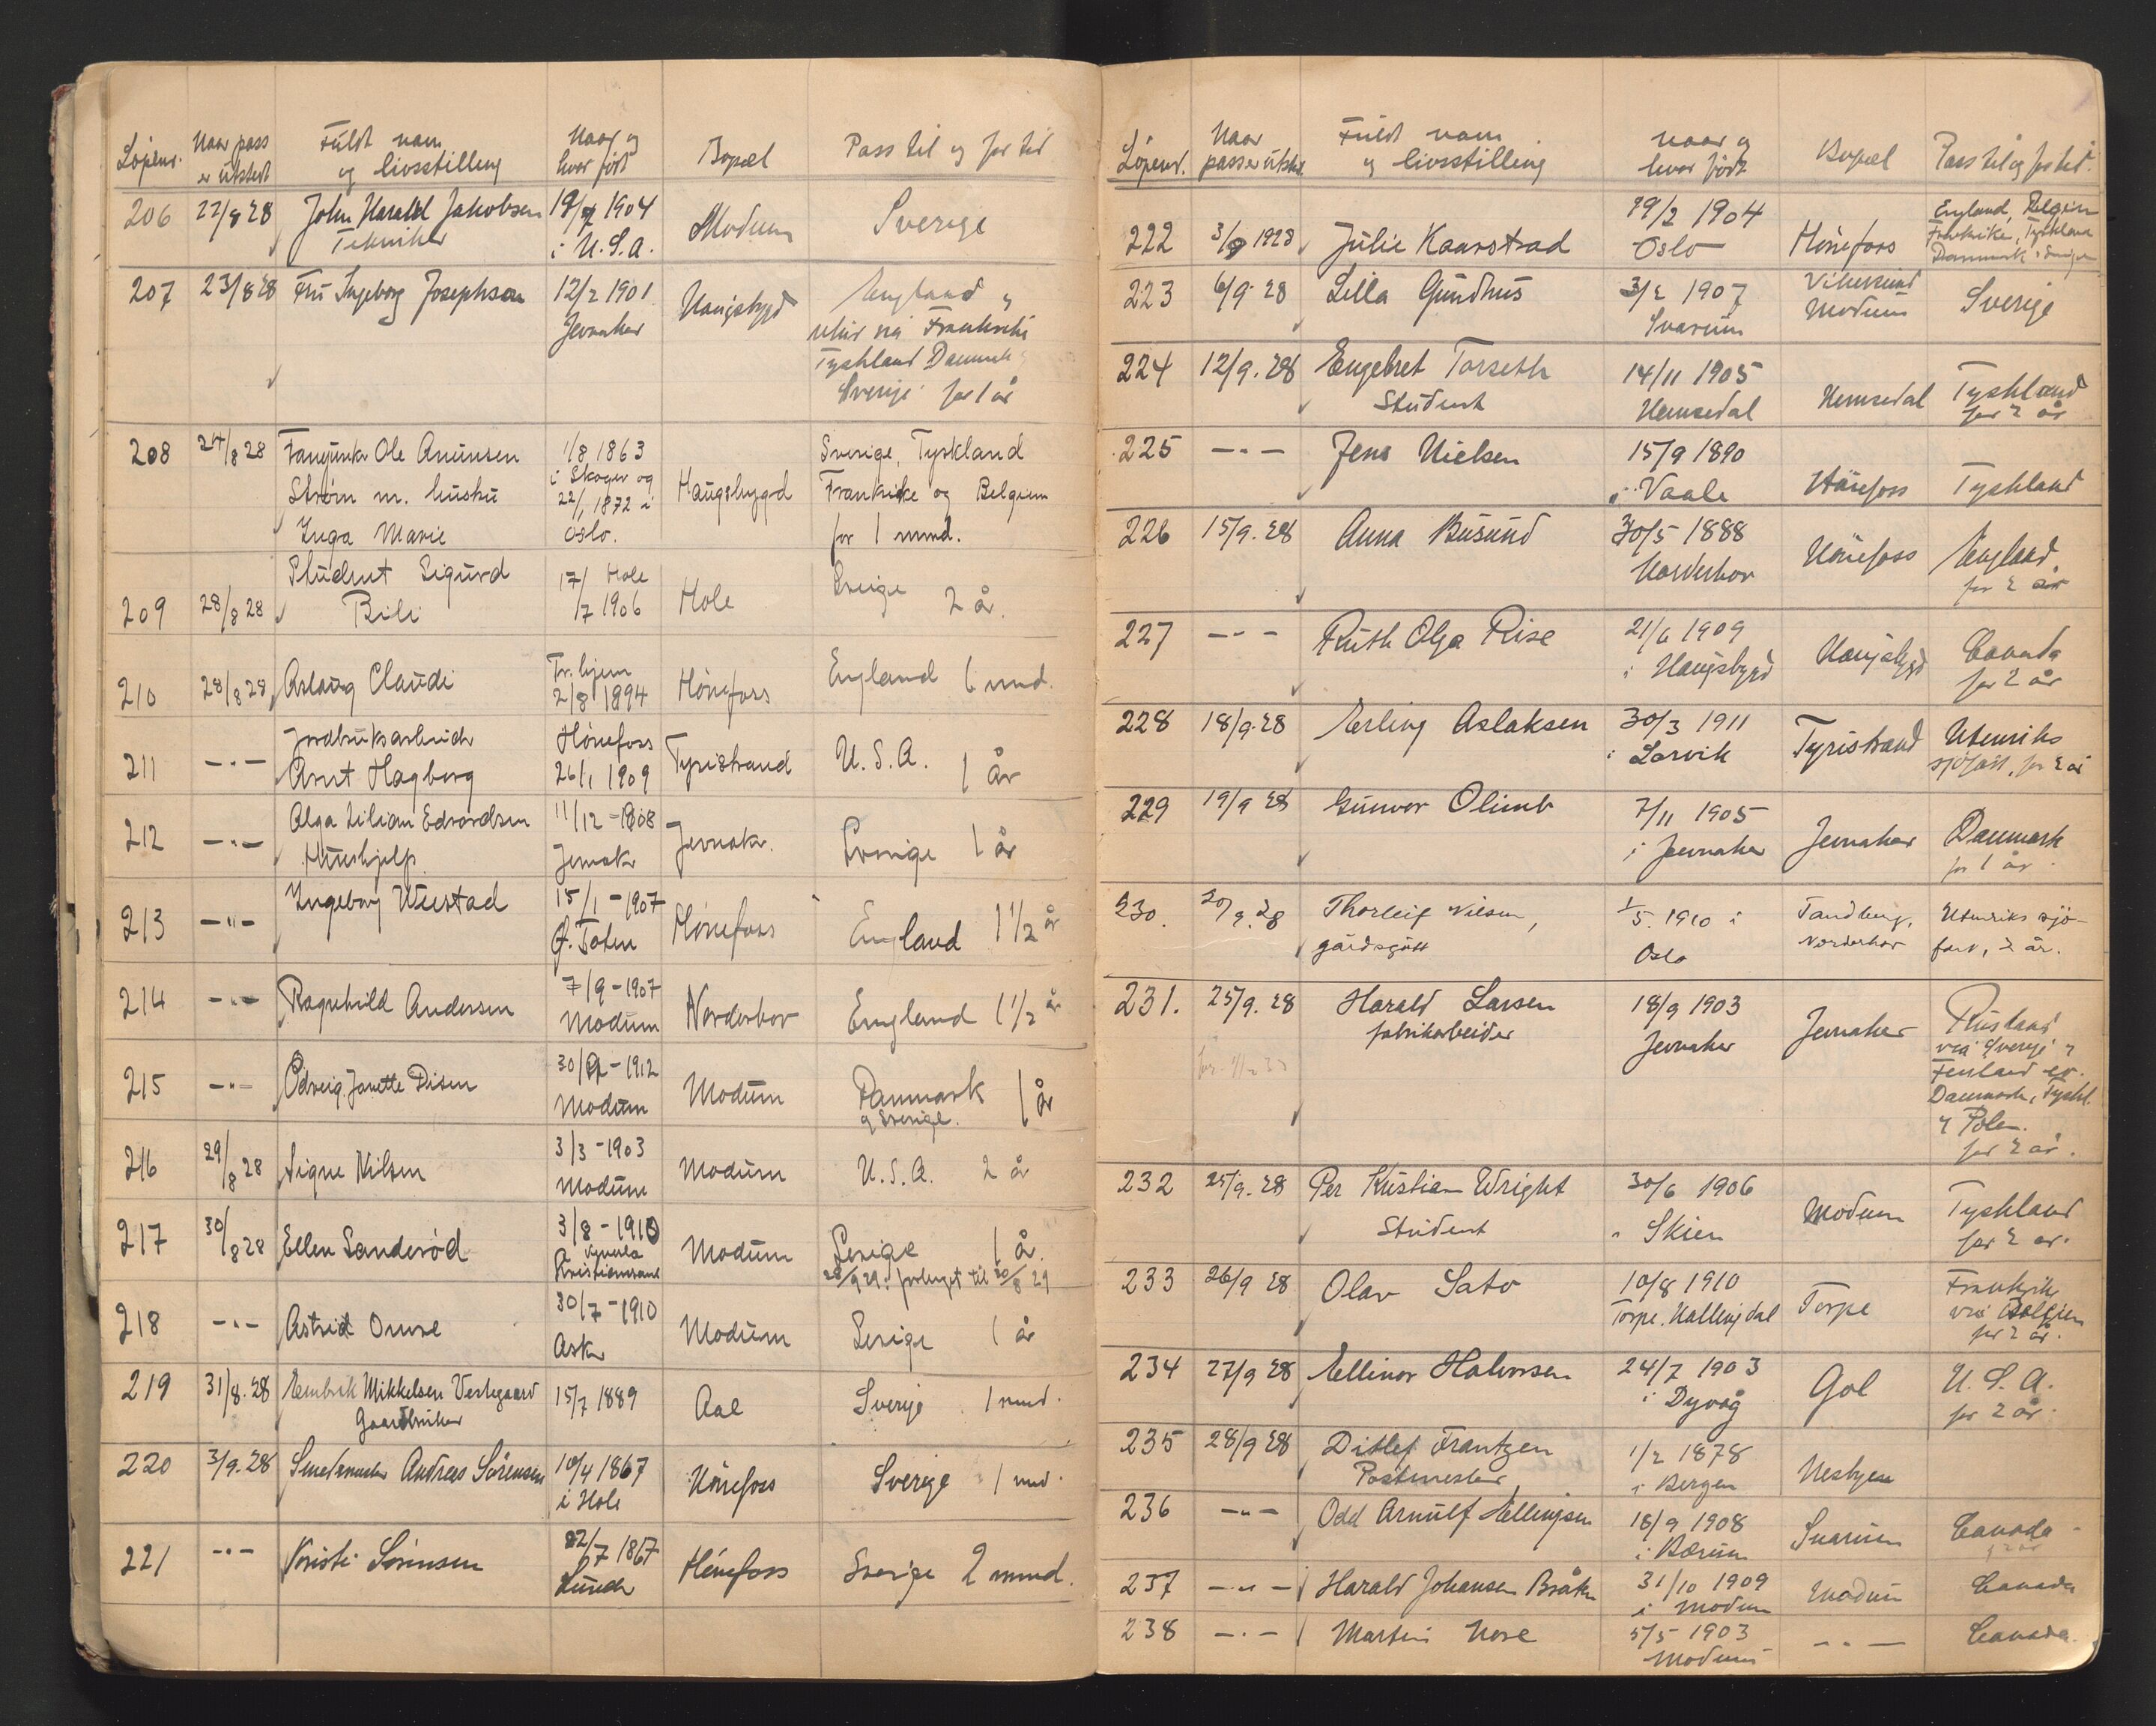 Löpenr. Naar pass er utstedt Fuldt navn og livsstilling Naar og hvor födt Bopæl Pass til og for tid
206 22/8 28 John Harald Jakobsen 19/7 1904 Modum Sverige
Tekniker i U.S.A.
207 23/8 28 Fru Ingeborg Josephsen 12/2 1901 Haugsbygd England og
Jevnaker retur via Frankrike
Tyskland Danmark og
Sverige for 1 år
208 24/8 28 Ole Amunsen 1/8 1863 Sverige, Tyskland
Strøm m. hustru i Skoger og Haugsbygd Frankrike og Belgien
22/1 1872 i
Inga Marie Oslo. for 1 mnd.
Student Sigurd 17/ Hole
209 28/8 28 Bili 7 1906 Hole Sverige 2 år.
210 28/8 28 Aslaug Claudi Tr.hjem Hönefoss England 6 mnd.
2/8 1894
Jordbruksarbeider Hönefoss
211 -"- Arnt Hagberg 26/1 1909 Tyristrand U.S.A. 1 år
Alga Lilian Edvardsen 11/12 - 1908
212 -"- Hushjelp Jevnak. Jevnak. Sverige 1 år
Ingeborg Wustad 15/1 - 1907
213 -"- Ø. Toten Hönefoss England 1 1/2 år
214 -"- Ragnhild Andersen 7/9 - 1907 Norderhov England 1 1/2 år
Modum
215 -"- Odveig Janette Disen 30/12 - 1912 Modum Danmark 1 år
Modum og Sverige.
216 29/8 28 Signe Nilsen 3/3 - 1903 Modum U.S.A. 2 år
Modum
217 30/8 28 Ellen Sanderød 3/8 - 1910 Modum Sverige 1 år.
Kristiansand 28/9 29. forlenget til 30/8 29
218 -"- Astrid 30/7 - 1910 Modum Sverige 1 år
Ask
219 31/8. 28 Embrik Mikkelsen Vestegaard 15/7 1889 Aal Sverige 1 mnd.
Gaardbruker
220 3/9. 28 Smedmester Andreas Sörensen 10/4 1867 Hönefoss Sverige 1 mnd.
i Hole
221 -"- Kristi Sörensen 22/7 1867 Hönefoss Sverige 2 mnd.
Lunder
Löpenr. Naar pass er utstedt. Fuldt navn og livsstilling naar og hvor födt Bopæl Pass til og for tid.
222 3/9 1928 Julie Kaarstad 29/2 1904 Hönefoss England, Belgien
Oslo Frankrike, Tyskland
Danmark, Sverige
223 6/9. 28 Lilla Gundhus 3/2 1907 Vikersund Sverige
Snarum Modum
224 12/9. 28 Engebret Torseth 14/11 1905 Hemsedal Tyskland
Student Hemsedal for 2 år
225 -"- Jens Nielsen 15/9 1890 Hönefoss Tyskland
i Vaale
226 15/9. 28 Anna Busund 30/5 1888 Hönefoss England
Norderhov for 2 år
227 -"- Ruth Olga Rise 21/6 1909 Haugsbygd Canada
i Haugsbygd for 2 år
228 18/9. 28 Erling Aslaksen 30/3 1911 Tyristrand Utenriks
i Larvik sjöfart, for 2 år
229 19/9 28 Gunvor Olimb 7/11 1905 Jevnaker Danmark
i Jevnaker for 1 år
230. 20/9. 28 Thorleif Nilsen, 1/5. 1910 i Tandberg, Utenriks sjö-
gårdsgutt Oslo Norderhov fart, 2 år.
231. 25/9. 28 Harald Larsen 18/9 1903 Jevnaker Rusland
fabrikarbeider Jevnaker via Sverige og
Finland
Danmark, Tyskl.
og Polen.
for 2 år.
232 25/9. 28 Per Kristian Wright 30/6 1906 Modum Tyskland
Student i Skien for 2 år.
233 26/9 28 Olav Sato 10/8 1910 Torpe Frankrike
Torpe. Hallingdal via Belgien
for 2 år.
234 27/9 28 Ellinor Halvorsen 24/7 1903 Gol U.S.A.
i Dyvåg for 2 år.
235 28/9 28 Ditlef Frantzen 1/2 1878 Nesbyen
Postmester i Bergen
236 -"- Odd Arnulf Ellingsen 18/9 1908 Snarum Canada
i Bærum
237 -"- Harald Johansen Bråten 31/10 1909 Modum Canada
i Modum
238 -"- Martin 5/5 1903 -"- Canada.
Modum